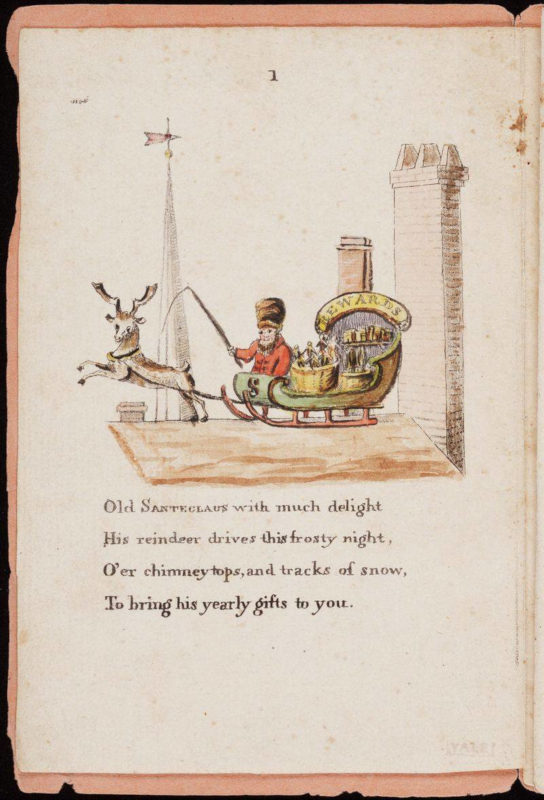 1
REWARDS
S
Old SANTECLAUS with much delight
His reindeer drives this frosty night,
O'er chimneytops, and tracks of snow,
To bring his yearly gifts to you.
YALE